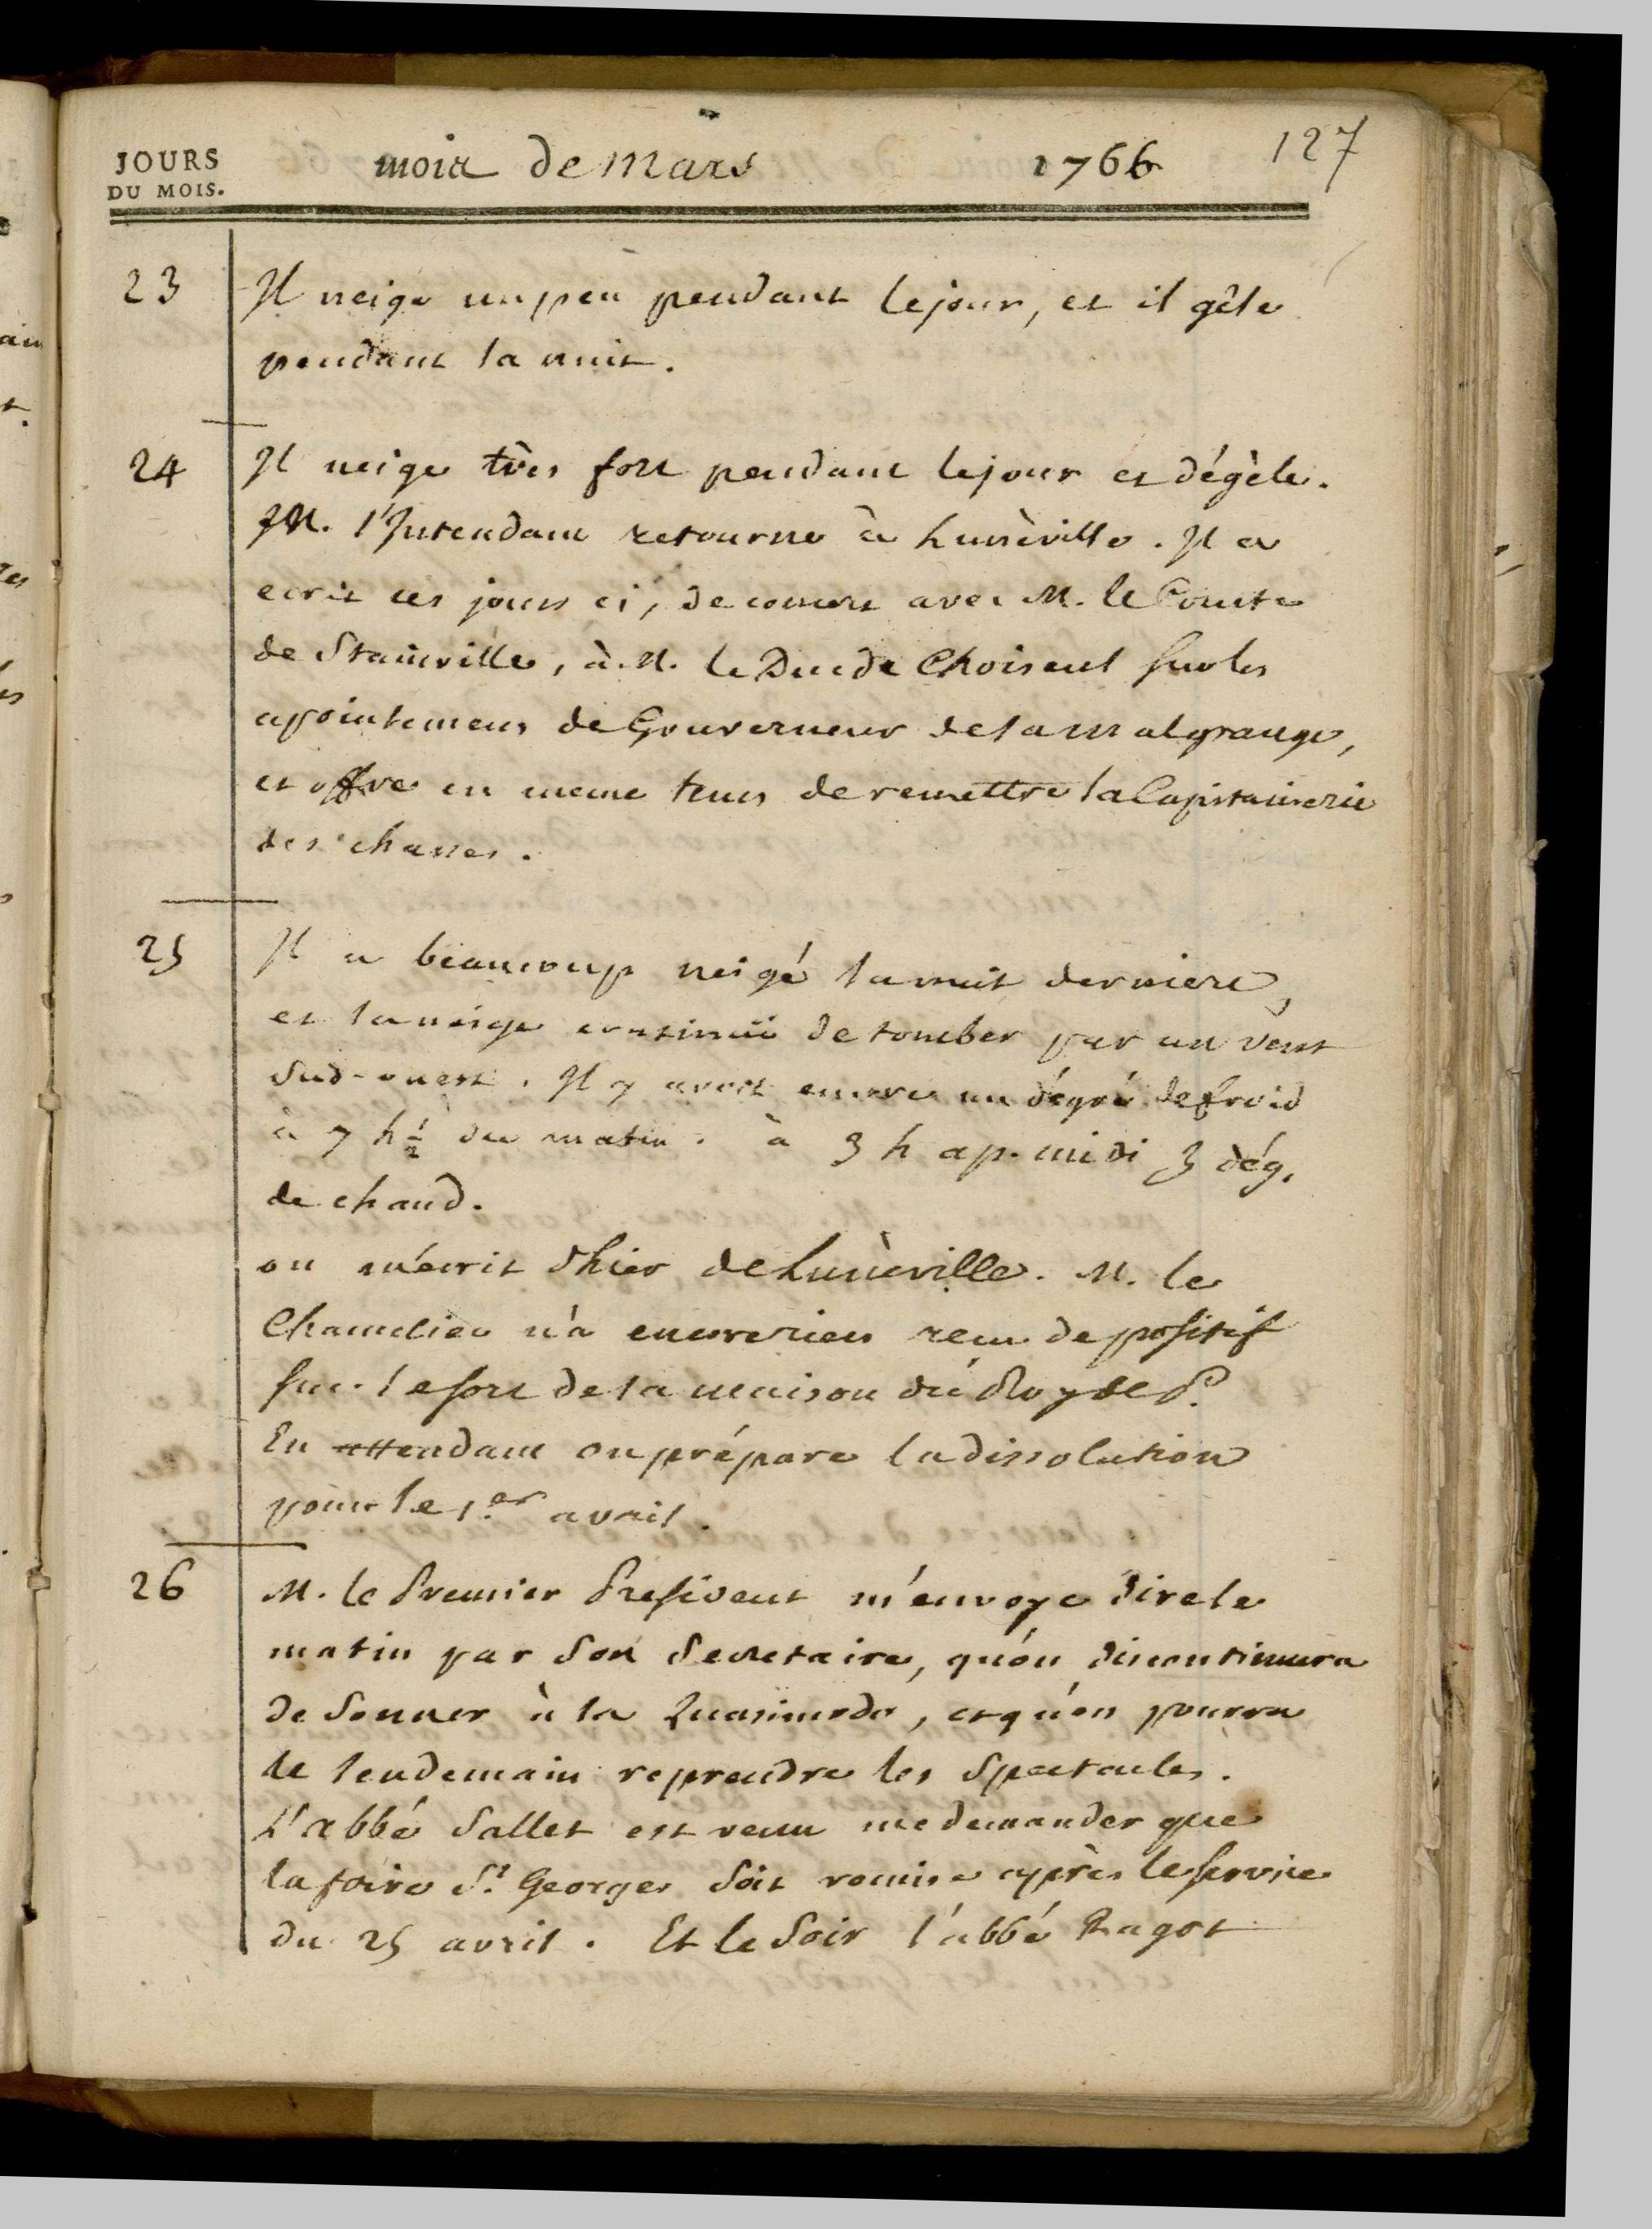 JOURS
DU MOIS.
mois de Mars 1766 127
23 Il neige un peu pendant le jour, et il gêle
pendant la nuit.
24 Il neige très fort pendant le jour et dégèle.
M. l'Intendant retourne à Lunèville. Il a
ecrit ces jours ci, de concert avec M. le Comte
de Stainville, à M. le Duc de Choiseul sur les
apointemens de Gouverneur de la malgrange,
et offre en meme tems de remettre la Capitainerie
des chasses.
25 Il a beaucoup neigé la nuit derniere,
et la neige continüe de tomber par un vent
Sud-ouest. Il y avoit encore un dégré de froid
à 7 h ½ du matin. à 3 h ap. midi 3 dég.
de chaud.
on m'écrit d'hier de Lunèville. M. le
Chancelier n'a encore rien recu de positif
sur le sort de la maison du Roy de P.
En attendant on prépare la dissolution
pour le 1.er avril.
26 M. le Premier President m'envoye dire le
matin par son Secretaire, qu'on discontinuera
de sonner à la Quasimodo, et qu'on pourra
le lendemain reprendre les Spectacles.
L'abbé Sallet est venu me demander que
la foire St. Georges soit remise après le service
du 25 avril. Et le soir l'abbé Ragot